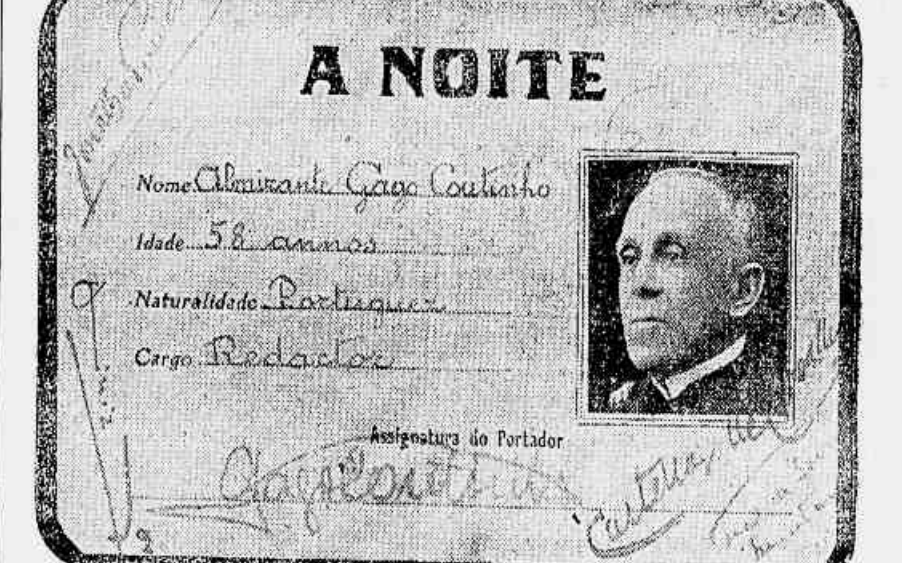 A NOITE
Nome Almirante Gago Coutinho
Idade 58 annos
Naturalidade Portuguez
Cargo Redactor
Assignatura do Portador
Gago Coutinho